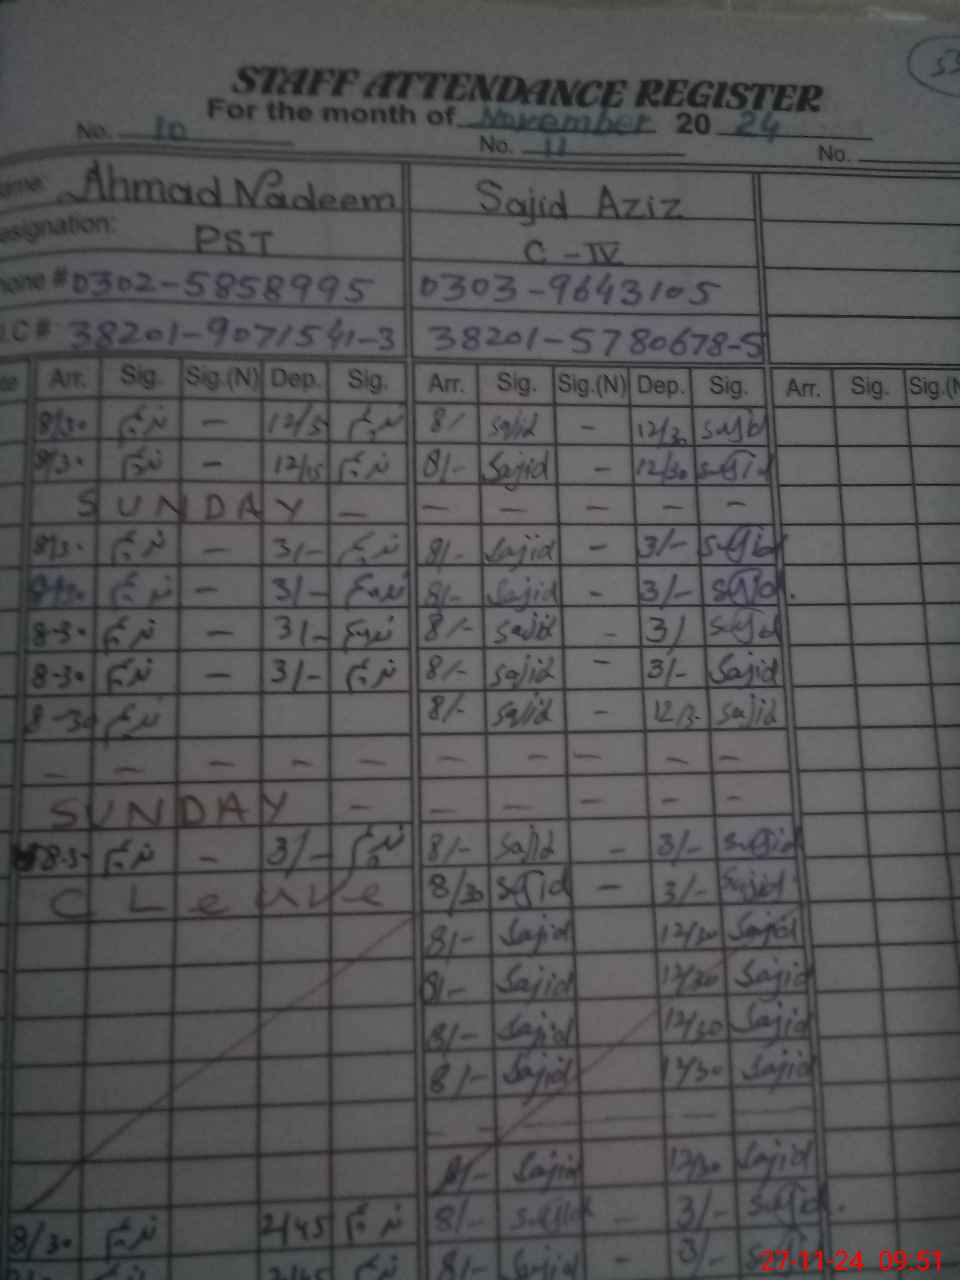 STAFF ATTENDANCE REGISTER
For the month of November 20 24
No. 10 No. 11 No.
Ahmad Nadeem Sajid Aziz
esignation: PST C-IV
hone # 0302-5858995 0303-9643105
.I.C # 38201-9071541-3 38201-5780678-5
Arr. Sig. Sig.(N) Dep. Sig. Arr. Sig. Sig.(N) Dep. Sig. Arr. Sig. Sig.(N
8/30 ندیم - ندیم 8/- Sajid - 12/30 Sajid
8/30 ندیم - 12/15 ندیم 8/- Sajid - 12/30 Sajid
SUNDAY - - - - - -
8/30 ندیم - 3/- ندیم 8/- Sajid - 3/- Sajid
8/30 ندیم - 3/- ندیم 8/- Sajid - 3/- Sajid
8-30 ندیم - 3/- ندیم 8/- Sajid - 3/ Sajid
8-30 ندیم - 3/- ندیم 8/- Sajid - 3/- Sajid
8-30 ندیم 8/- Sajid - Sajid
- - - - - - - - - -
SUNDAY - - - - - -
8-30 ندیم - 3/- ندیم 8/- Sajid - 3/- Sajid
C Leave 8/30 Sajid - 3/- Sajid
8/- Sajid 12/30 Sajid
8/- Sajid 12/30 Sajid
8/- Sajid 12/30 Sajid
8/- Sajid 12/30 Sajid
8/- Sajid 12/30 Sajid
8/30 ندیم 2/45 ندیم 8/- Sajid - 3/- Sajid
ندیم 2/45 ندیم 8/- Sajid - 3/-
27-11-24 09:51